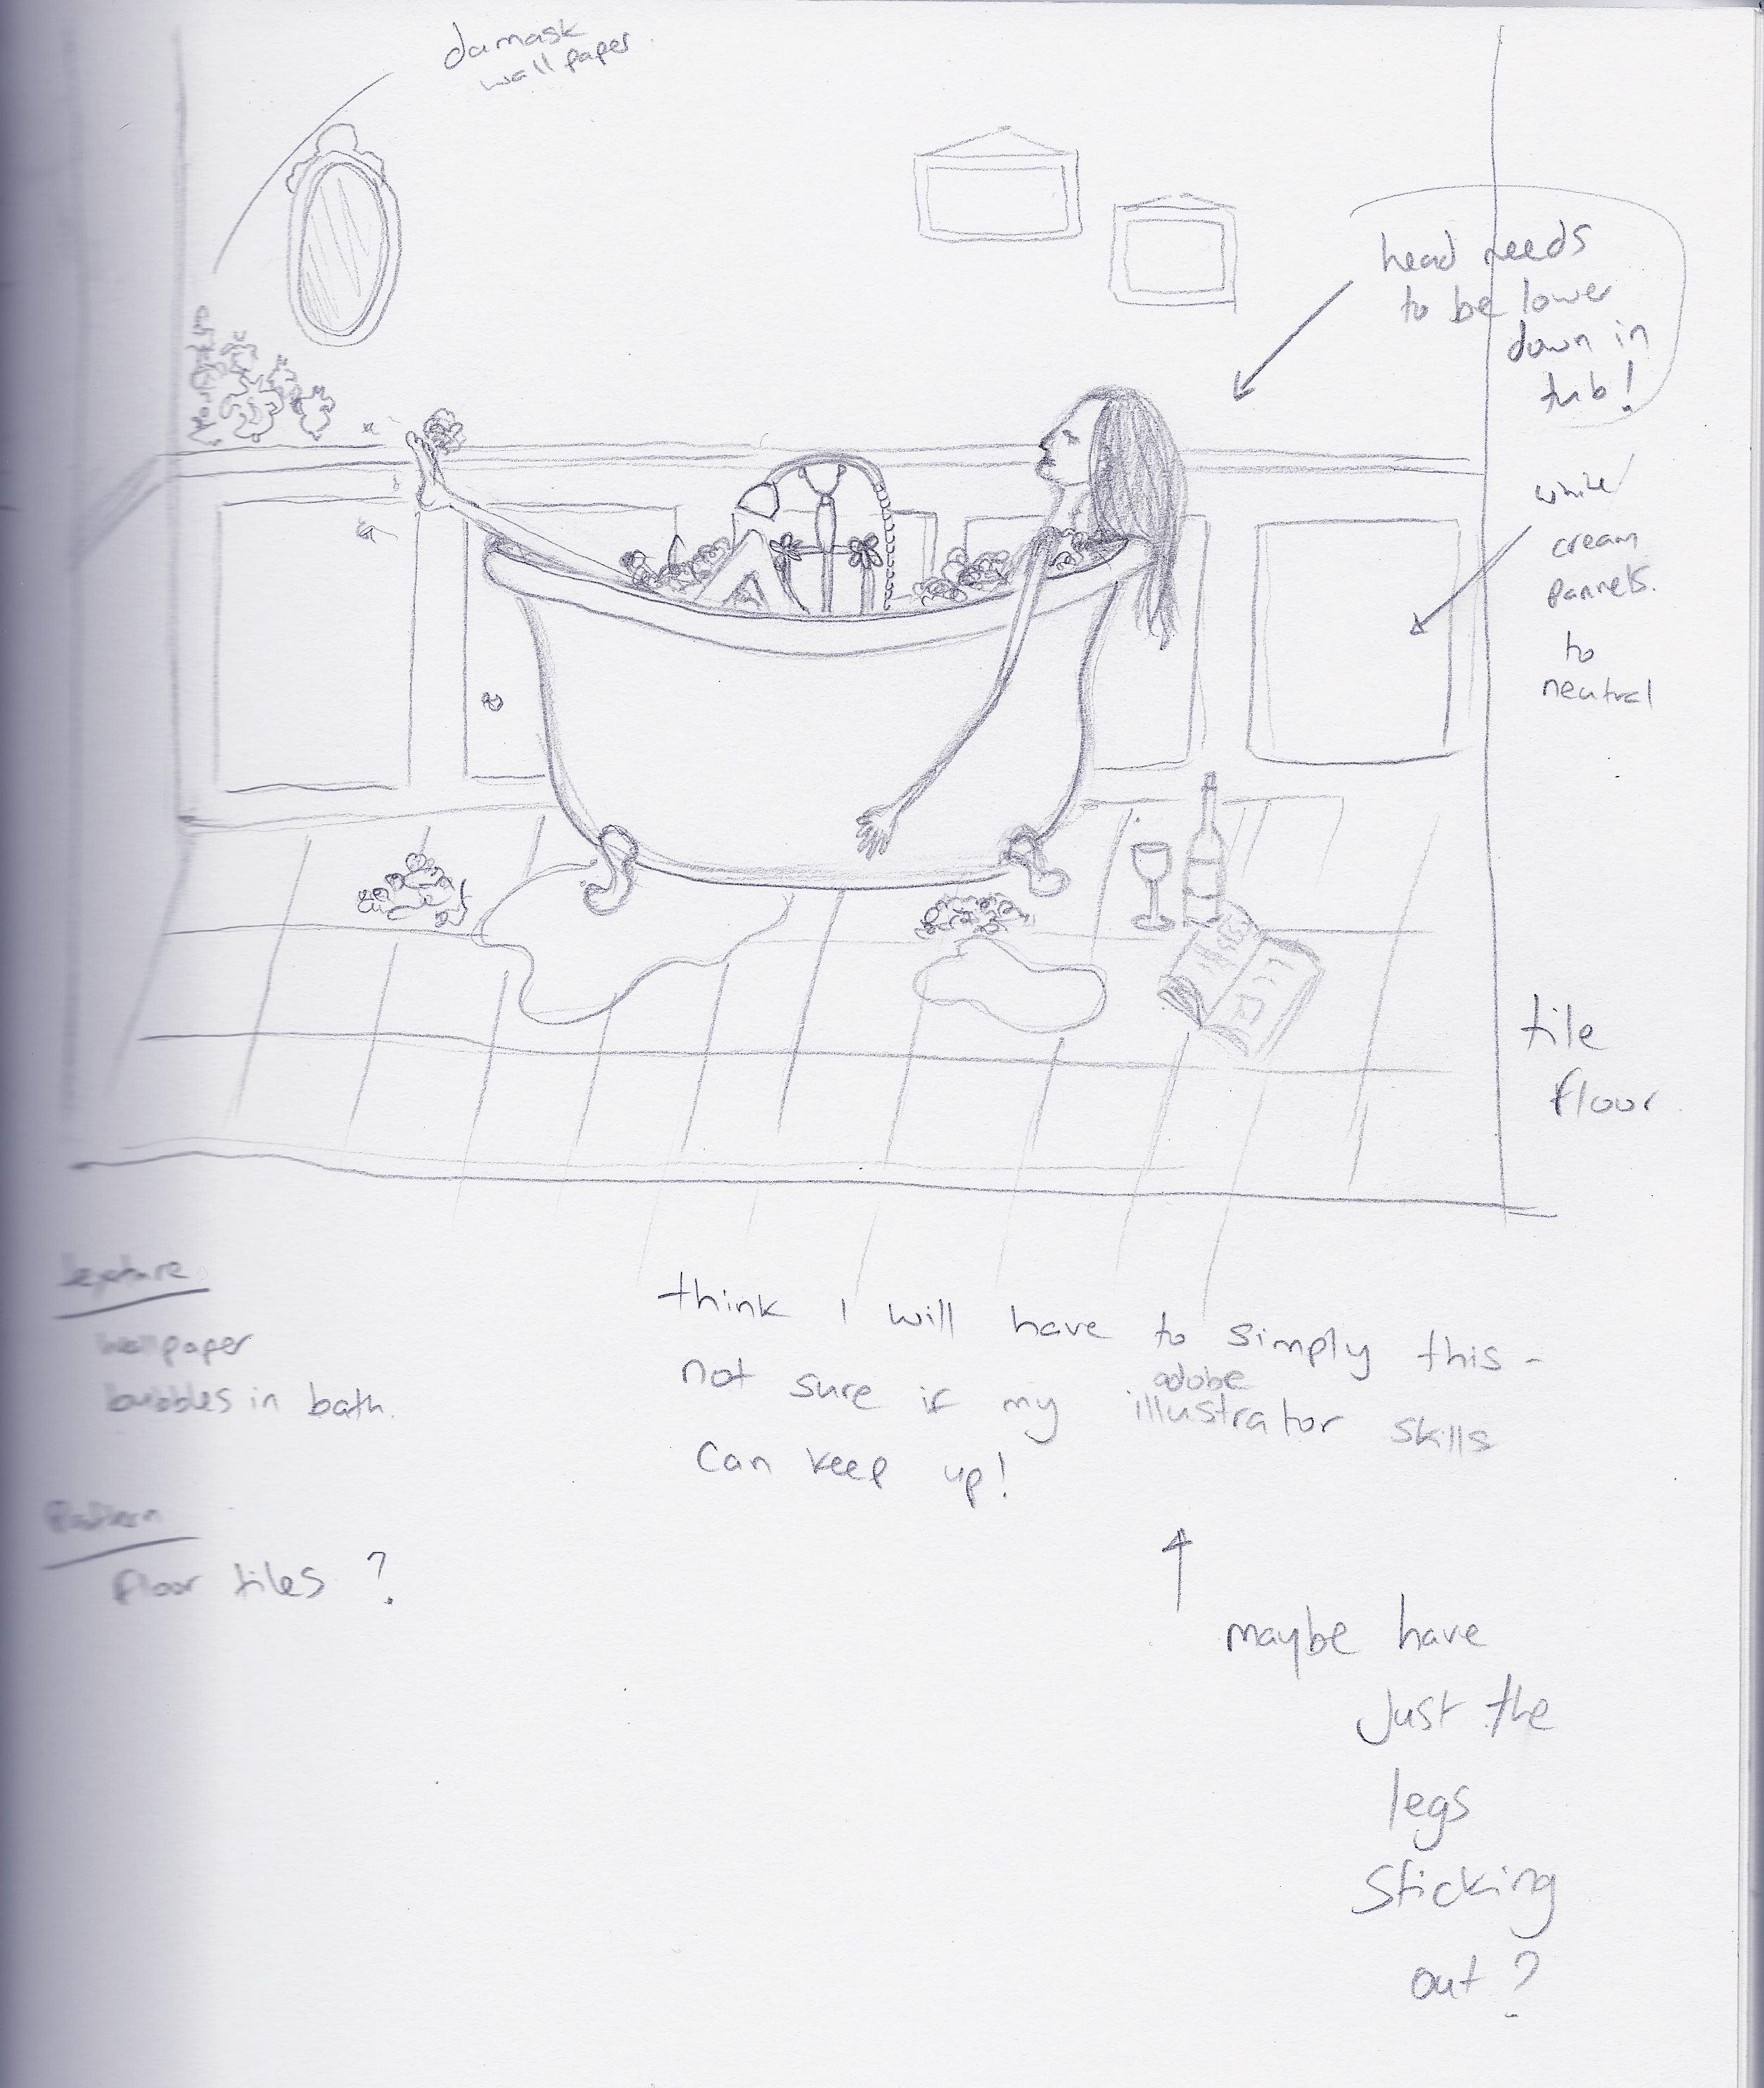 damask
wallpaper
head needs
to be lower
down in
tub!
white/
cream
pannels.
to
neutral
tile
floor
texture
wallpaper
bubbles in bath.
Pattern
floor tiles ?
think I will have to simply this -
not sure if my adobe illustrator skills
can keep up!
maybe have
just the
legs
sticking
out ?